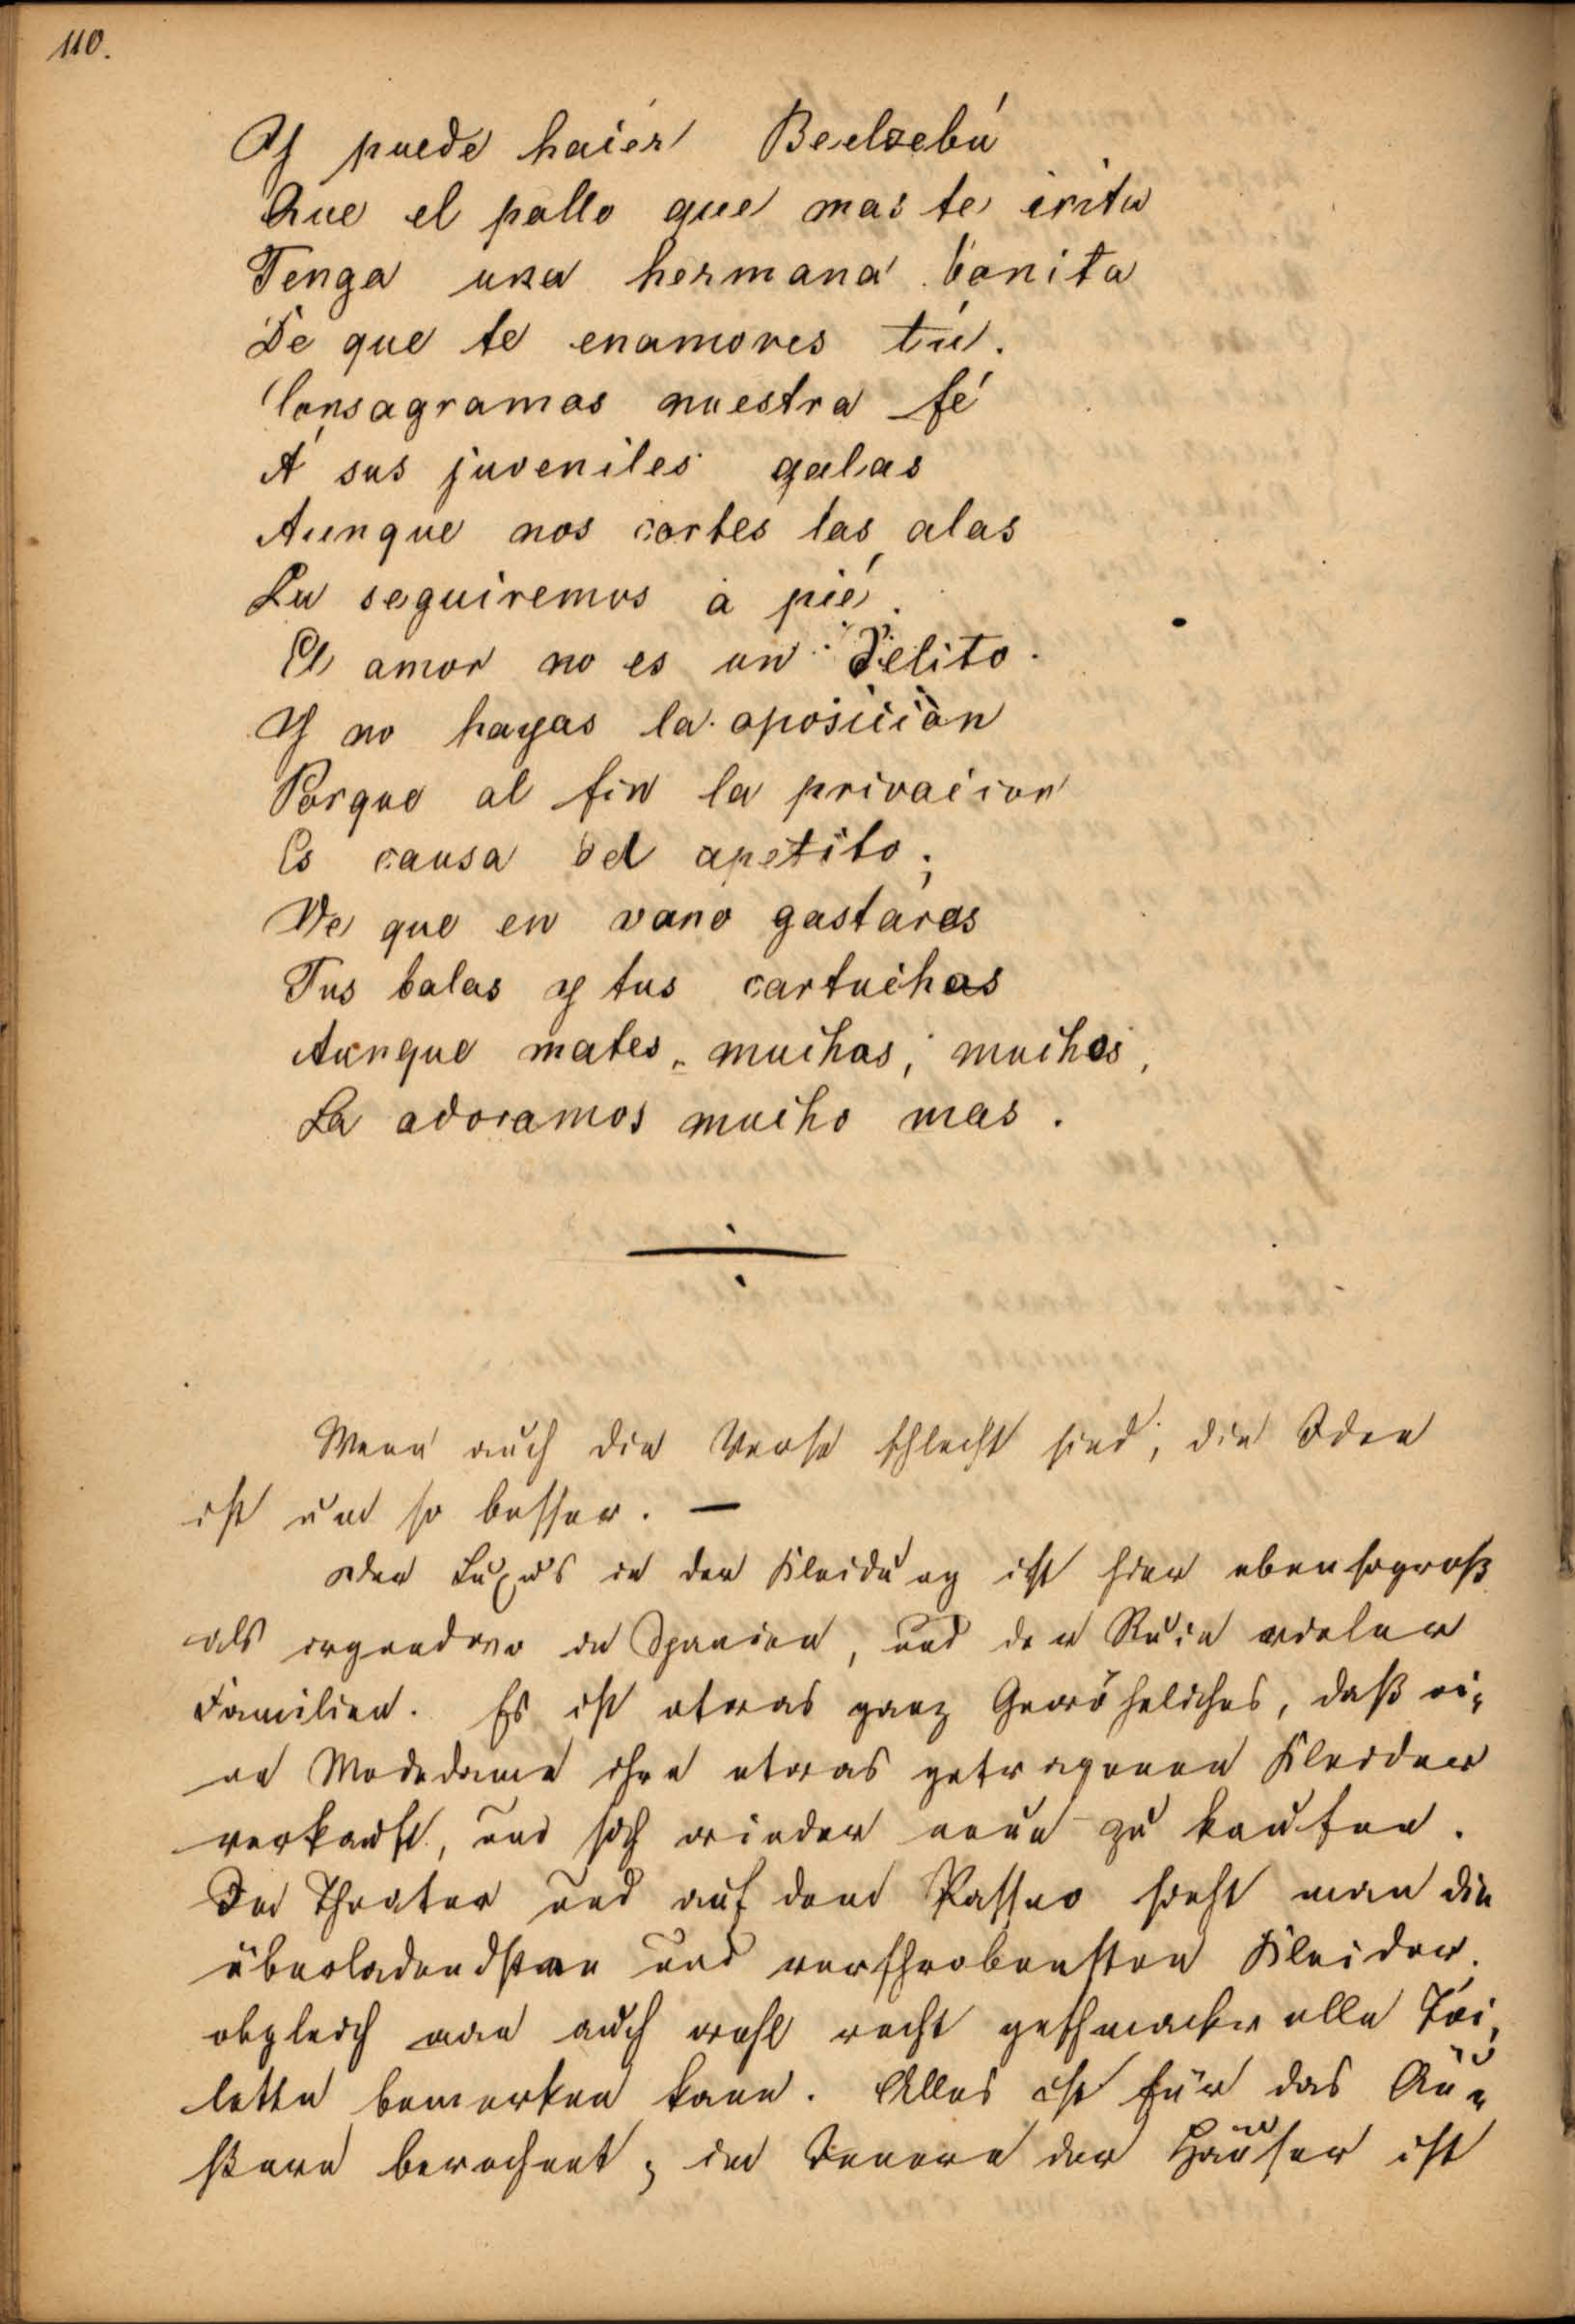 110.
Y puede haćer Beelzebú
Que el pollo que mas te irita
Tenga una hermana bonita
De que te enamores tú.
Consagramos nuestra fé
Á sus juveniles galas
Aunque nos cortes las alas
La seguiremos a pié.
El amor no es un delito.
Y no hayas la oposición
Porque al fin la privacion
Es causa del apetito;
Ve que en vano gastáras
Tus balas y tus cartuchos
Aunque mates, muchos, muchos,
La adoramos mucho mas.
Wenn auch die Verse schlecht sind, die Idee
ist um so besser. —
Der Luxus in der Kleidung ist hier ebensogroß
als irgendwo in Spanien, und der Ruin vieler
Familien. Es ist etwas ganz Gewöhnliches, daß ei-
ne Modedame ihre etwas getragenen Kleider
verkauft, um sich wieder neue zu kaufen.
Im Theater und auf dem Passeo sieht man die
überladendsten und verschrobensten Kleider.
obgleich man auch wohl recht geschmackvolle Toi-
lette bemerken kann. Alles ist für das Äu-
ßere berechnet; im Innern der Häuser ist